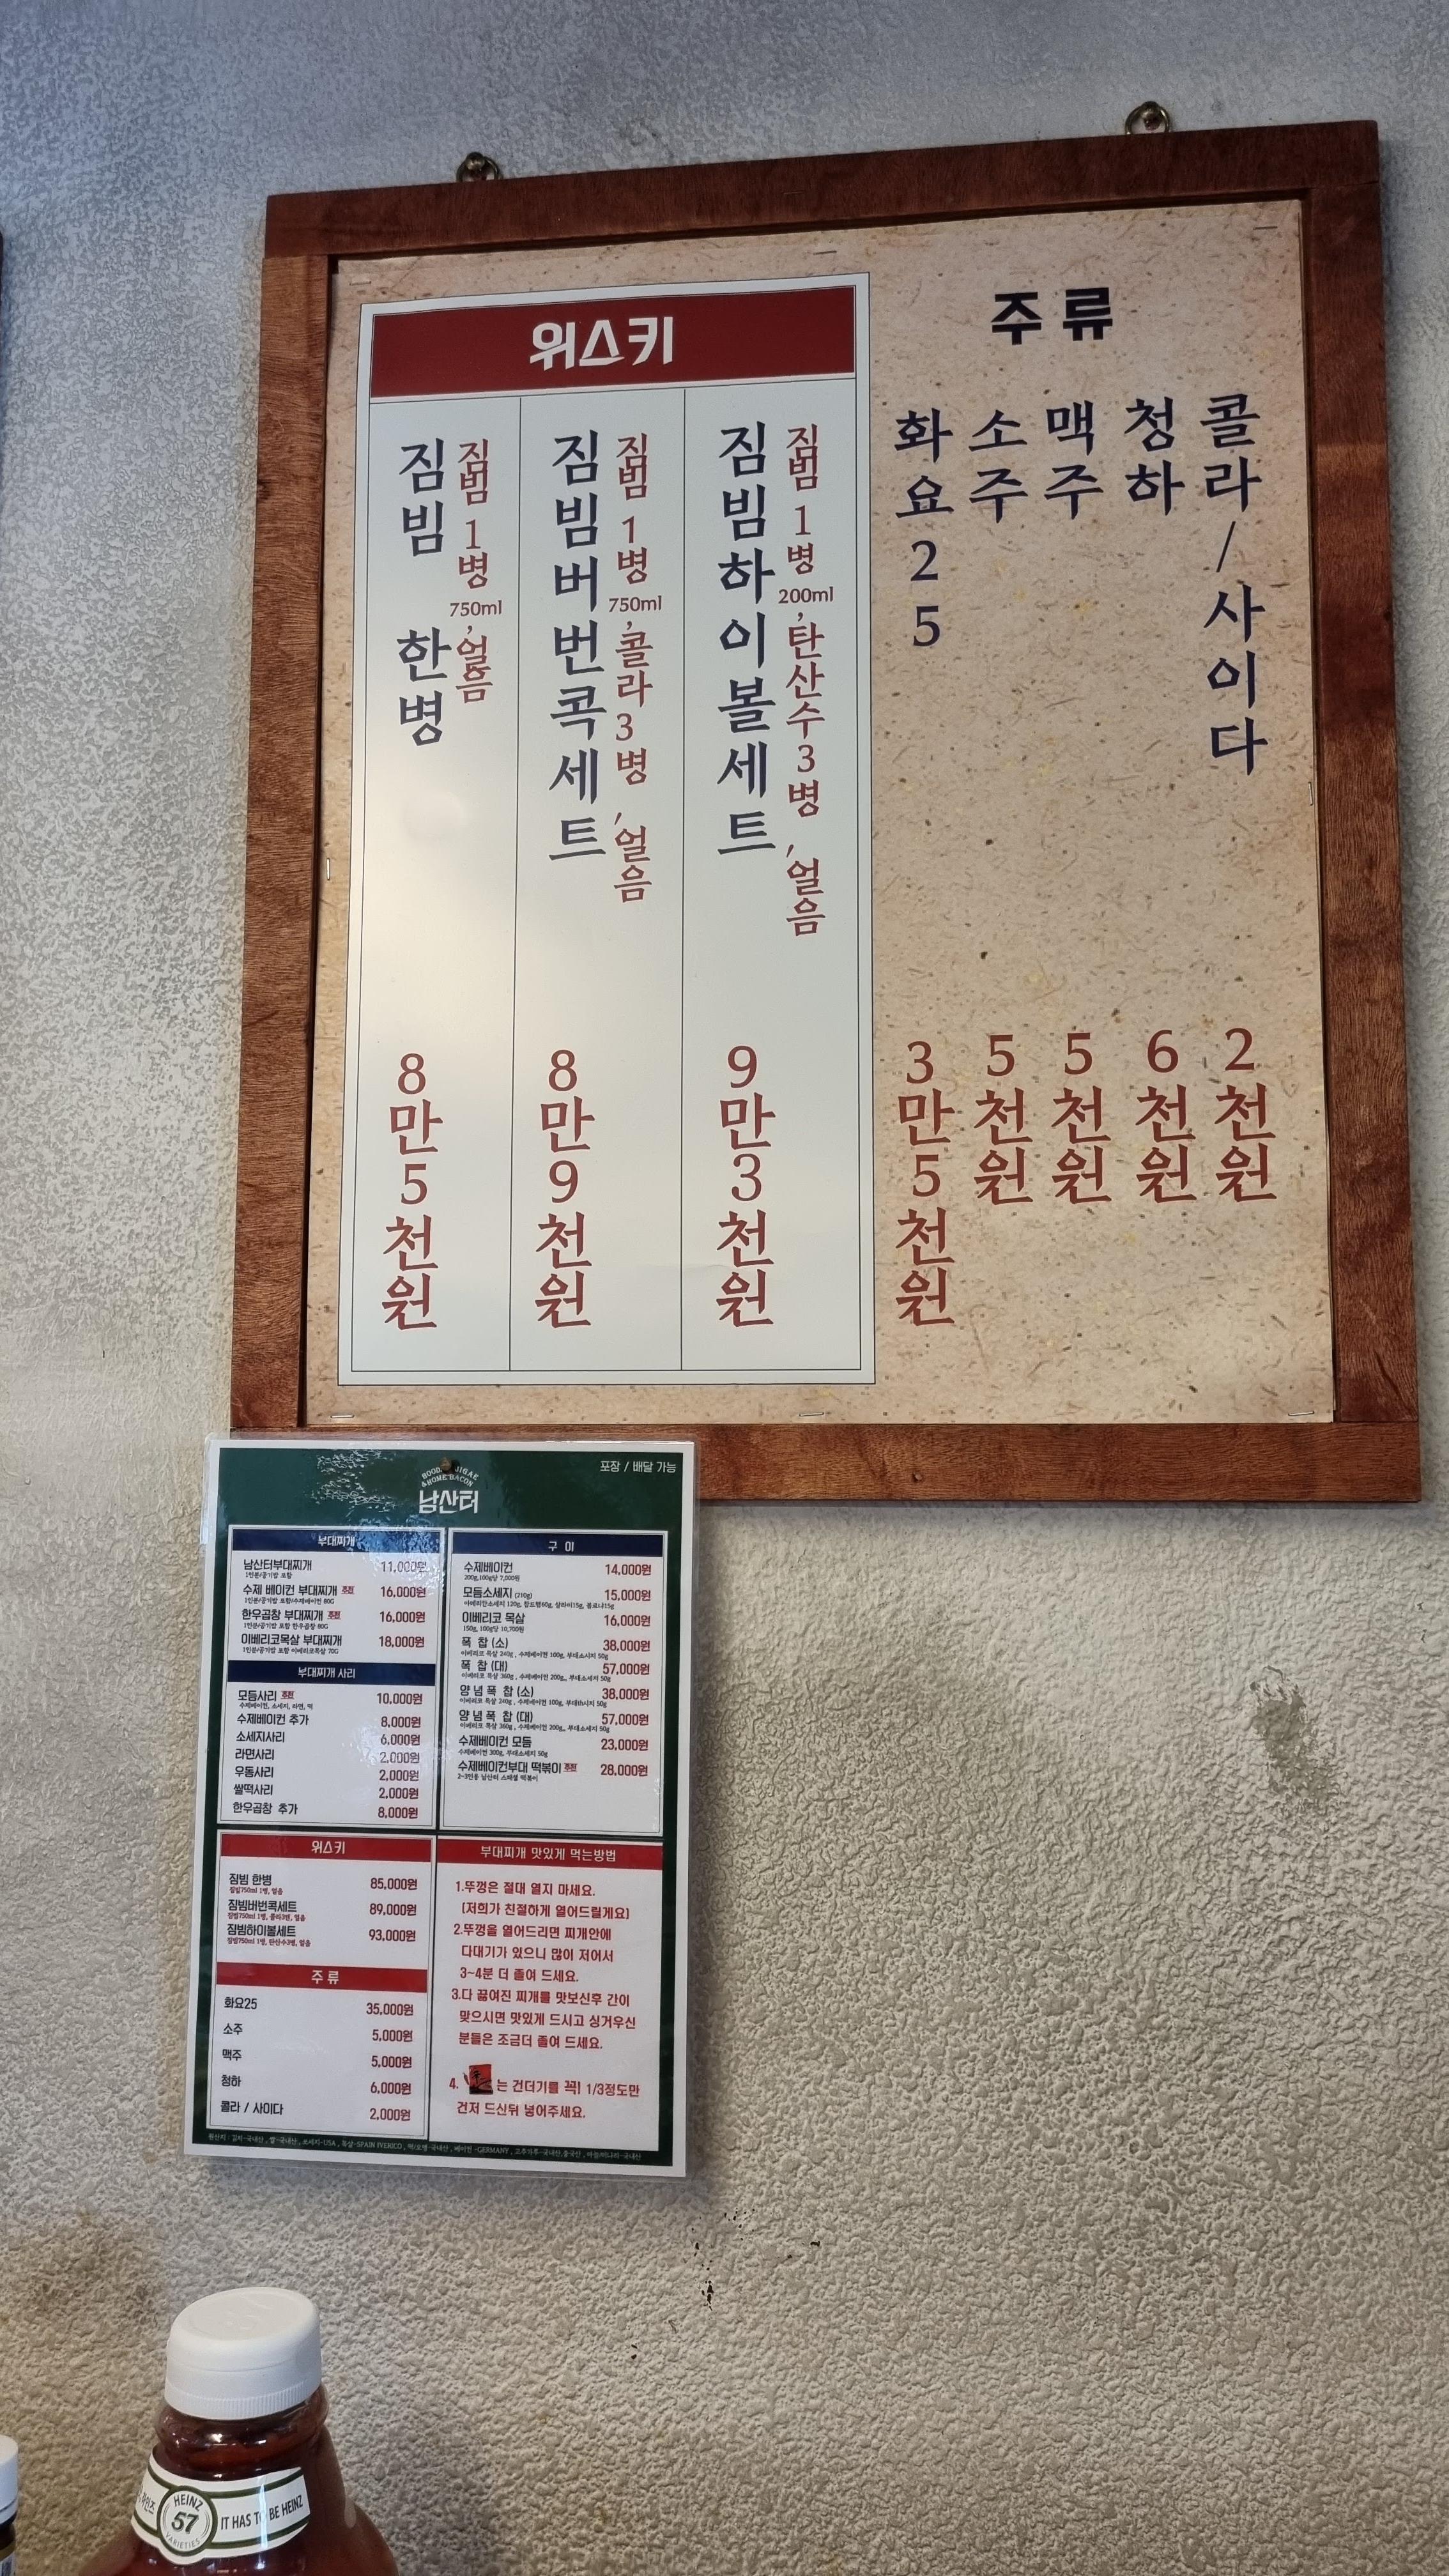 위스키
짐빔 한병
짐빔 1병 750ml, 얼음
8만5천원
짐빔버번콕세트
짐빔 1병 750ml, 콜라3병, 얼음
8만9천원
짐빔하이볼세트
짐빔 1병 200ml, 탄산수3병, 얼음
9만3천원
주류
화요25
3만5천원
소주
5천원
맥주
5천원
청하
6천원
콜라/사이다
2천원
포장 / 배달 가능
남산터
부대찌개
남산터부대찌개 11,000원
1인분/공기밥 포함
수제 베이컨 부대찌개 추천 16,000원
1인분/공기밥 포함/수제베이컨 80G
한우곱창 부대찌개 추천 16,000원
1인분/공기밥 포함 한우곱창 80G
이베리코목살 부대찌개 18,000원
1인분/공기밥 포함 이베리코목살 70G
부대찌개 사리
모듬사리 추천 10,000원
수제베이컨, 소세지, 라면, 떡
수제베이컨 추가 8,000원
소세지사리 6,000원
라면사리 2,000원
우동사리 2,000원
쌀떡사리 2,000원
한우곱창 추가 8,000원
구 이
수제베이컨 14,000원
200g,100g당 7,000원
모듬소세지 (210g) 15,000원
이베리코 목살 16,000원
150g, 100g당 10,700원
폭 찹 (소) 38,000원
이베리코 목살 240g , 수제베이컨 100g, 부대소시지 50g
폭 찹 (대) 57,000원
이베리코 목살 360g , 수제베이컨 200g,, 부대소세지 50g
양념폭 찹 (소) 38,000원
이베리코 목살 240g , 수제베이컨 100g, 부대소시지 50g
양념폭 찹 (대) 57,000원
이베리코 목살 360g , 수제베이컨 200g,, 부대소세지 50g
수제베이컨 모듬 23,000원
수제베이컨 300g, 부대소세지 50g
수제베이컨부대 떡볶이 추천 28,000원
2~3인용 남산터 스페셜 떡볶이
위스키
짐빔 한병 85,000원
짐빔750ml 1병, 얼음
짐빔버번콕세트 89,000원
짐빔750ml 1병, 콜라3캔, 얼음
짐빔하이볼세트 93,000원
짐빔750ml 1병, 탄산수3병, 얼음
주 류
화요25 35,000원
소주 5,000원
맥주 5,000원
청하 6,000원
콜라 / 사이다 2,000원
부대찌개 맛있게 먹는방법
1.뚜껑은 절대 열지 마세요.
(저희가 친절하게 열어드릴게요)
2.뚜껑을 열어드리면 찌개안에
다대기가 있으니 많이 저어서
3~4분 더 졸여 드세요.
3.다 끓여진 찌개를 맛보신후 간이
맞으시면 맛있게 드시고 싱거우신
분들은 조금더 졸여 드세요.
4. 는 건더기를 꼭! 1/3정도만
건저 드신뒤 넣어주세요.
HEINZ
57
VARIETIES
IT HAS TO BE HEINZ